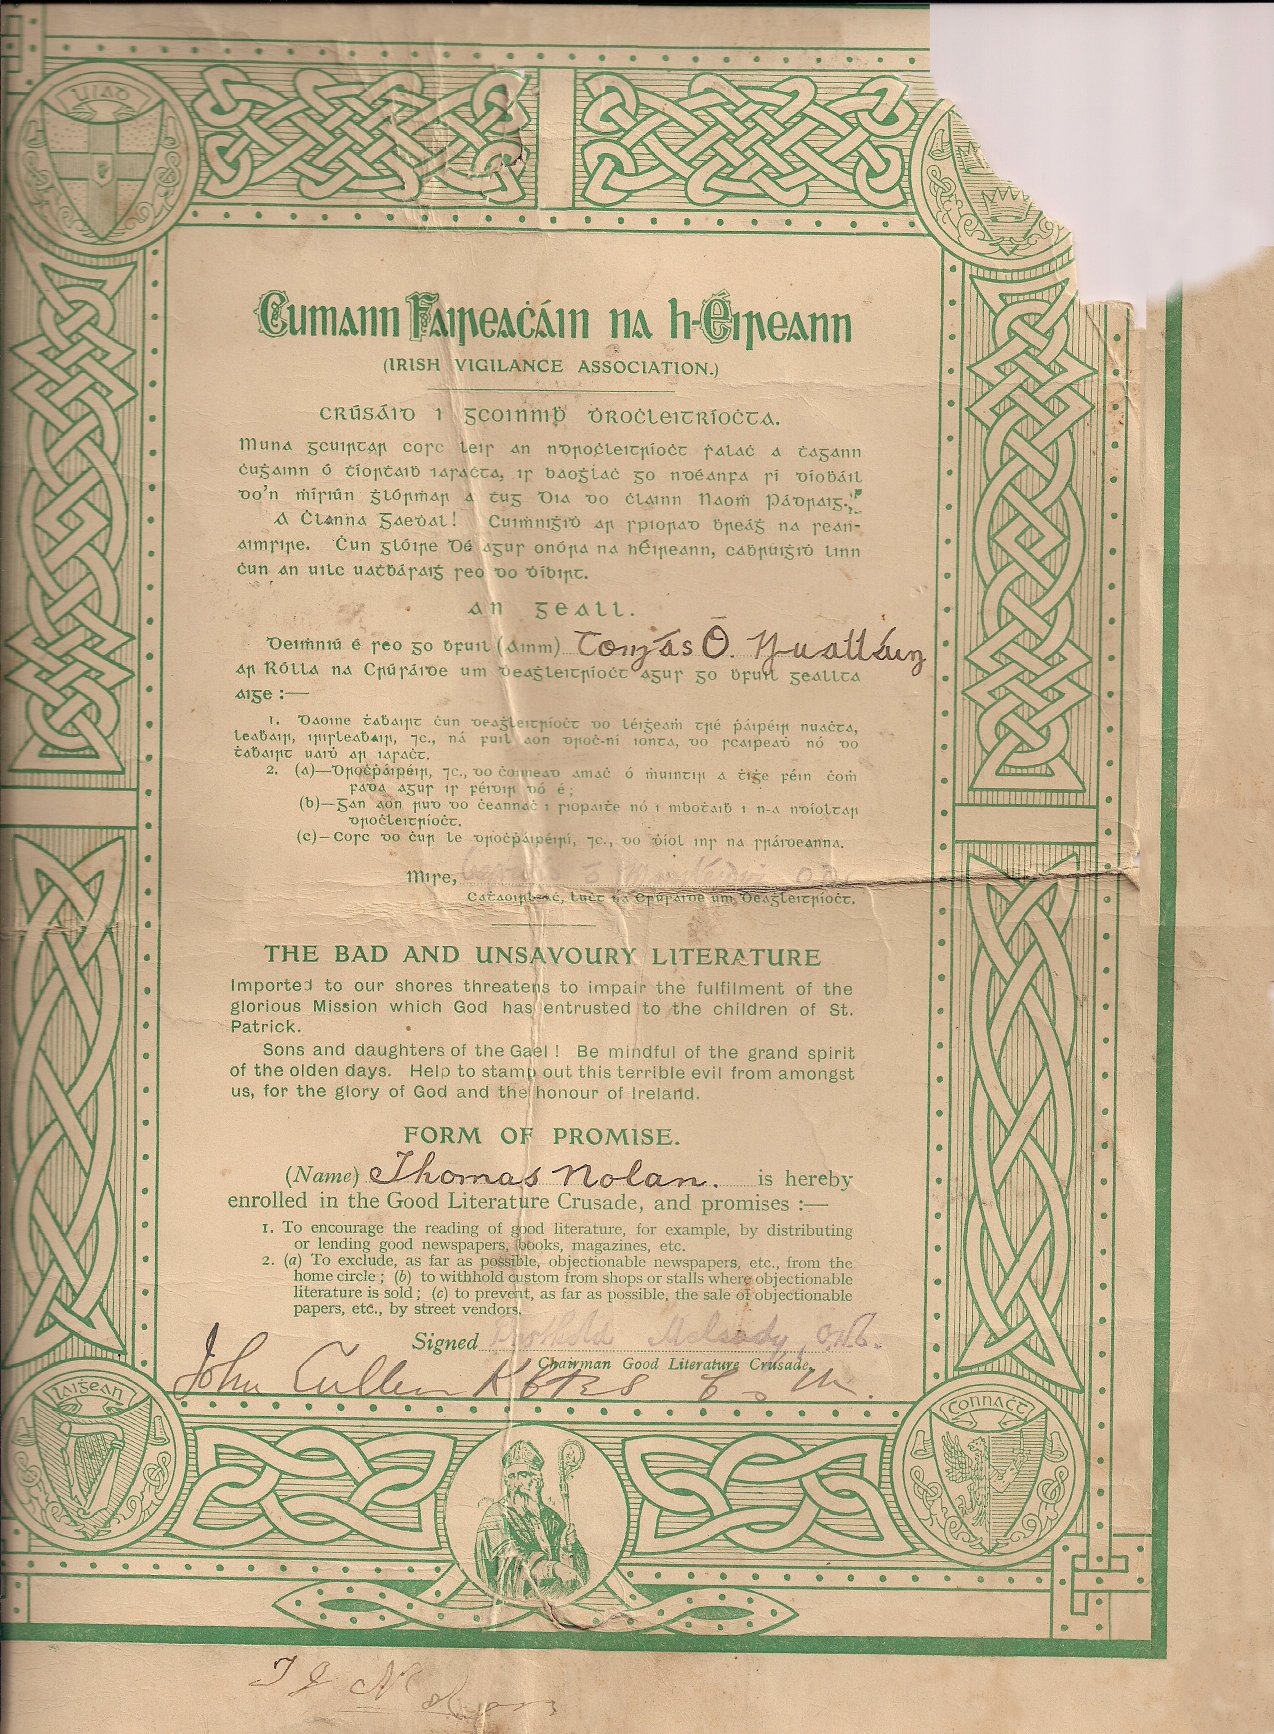 ULAḊ
Cumann Faireaċáin na h-Éireann
(IRISH VIGILANCE ASSOCIATION.)
CRÚSÁID I GCOINNIḂ ḊROĊLEITRÍOĊTA.
Muna gcuirtar cosc leis an ndroċleitríoċt ṡalaċ a ṫagann
ċuġainn ó ṫíorṫaiḃ iasaċta, is baoġlaċ go ndéanfa sí díoḃáil
do'n ṁisiún ġlórṁar a ṫug Dia do ċlainn Naoṁ Pádraig.
A Ċlanna Gaeḋal! Cuiṁniġiḋ ar spiorad ḃreáġ na sean-
aimsire. Ċun glóire Dé agus onóra na hÉireann, caḃruiġiḋ linn
ċun an uilc uaṫḃásaiġ seo do ḋíbirt.
AN GEALL.
Deiṁniú é seo go ḃfuil (Ainm) Tomás Ó Nualláin
ar Rólla na Crúsáide um Ḋeaġleitríoċt agus go ḃfuil geallta
aige :—
1. Daoine ṫaḃairt ċun deaġleitríoċt do léiġeaṁ tré ṗáipéir nuaċta,
leaḃair, irisleaḃair, ⁊c., ná fuil aon droċ-ní ionta, do scaipeaḋ nó do
ṫaḃairt uaiḋ ar iasaċt.
2. (a)—Droċṗáipéir, ⁊c., do ċoimead amaċ ó ṁuintir a ṫiġe féin ċoṁ
fada agus is féidir dó é;
(b)—Gan aon rud do ċeannaċ i siopaiḋe nó i mboṫaiḃ i n-a ndíoltar
droċleitríoċt.
(c)—Cosc do ċur le droċṗáipéirí, ⁊c., do ḋíol ins na sráideanna.
Mise,
Caṫaoirleaċ, Luċt na Crúsáide um Ḋeaġleitríoċt.
THE BAD AND UNSAVOURY LITERATURE
Imported to our shores threatens to impair the fulfilment of the
glorious Mission which God has entrusted to the children of St.
Patrick.
Sons and daughters of the Gael! Be mindful of the grand spirit
of the olden days. Help to stamp out this terrible evil from amongst
us, for the glory of God and the honour of Ireland.
FORM OF PROMISE.
(Name) Thomas Nolan. is hereby
enrolled in the Good Literature Crusade, and promises :—
1. To encourage the reading of good literature, for example, by distributing
or lending good newspapers, books, magazines, etc.
2. (a) To exclude, as far as possible, objectionable newspapers, etc., from the
home circle; (b) to withhold custom from shops or stalls where objectionable
literature is sold; (c) to prevent, as far as possible, the sale of objectionable
papers, etc., by street vendors.
Signed
Chairman Good Literature Crusade.
John Cullen
LAIĠEAN
CONNAĊT